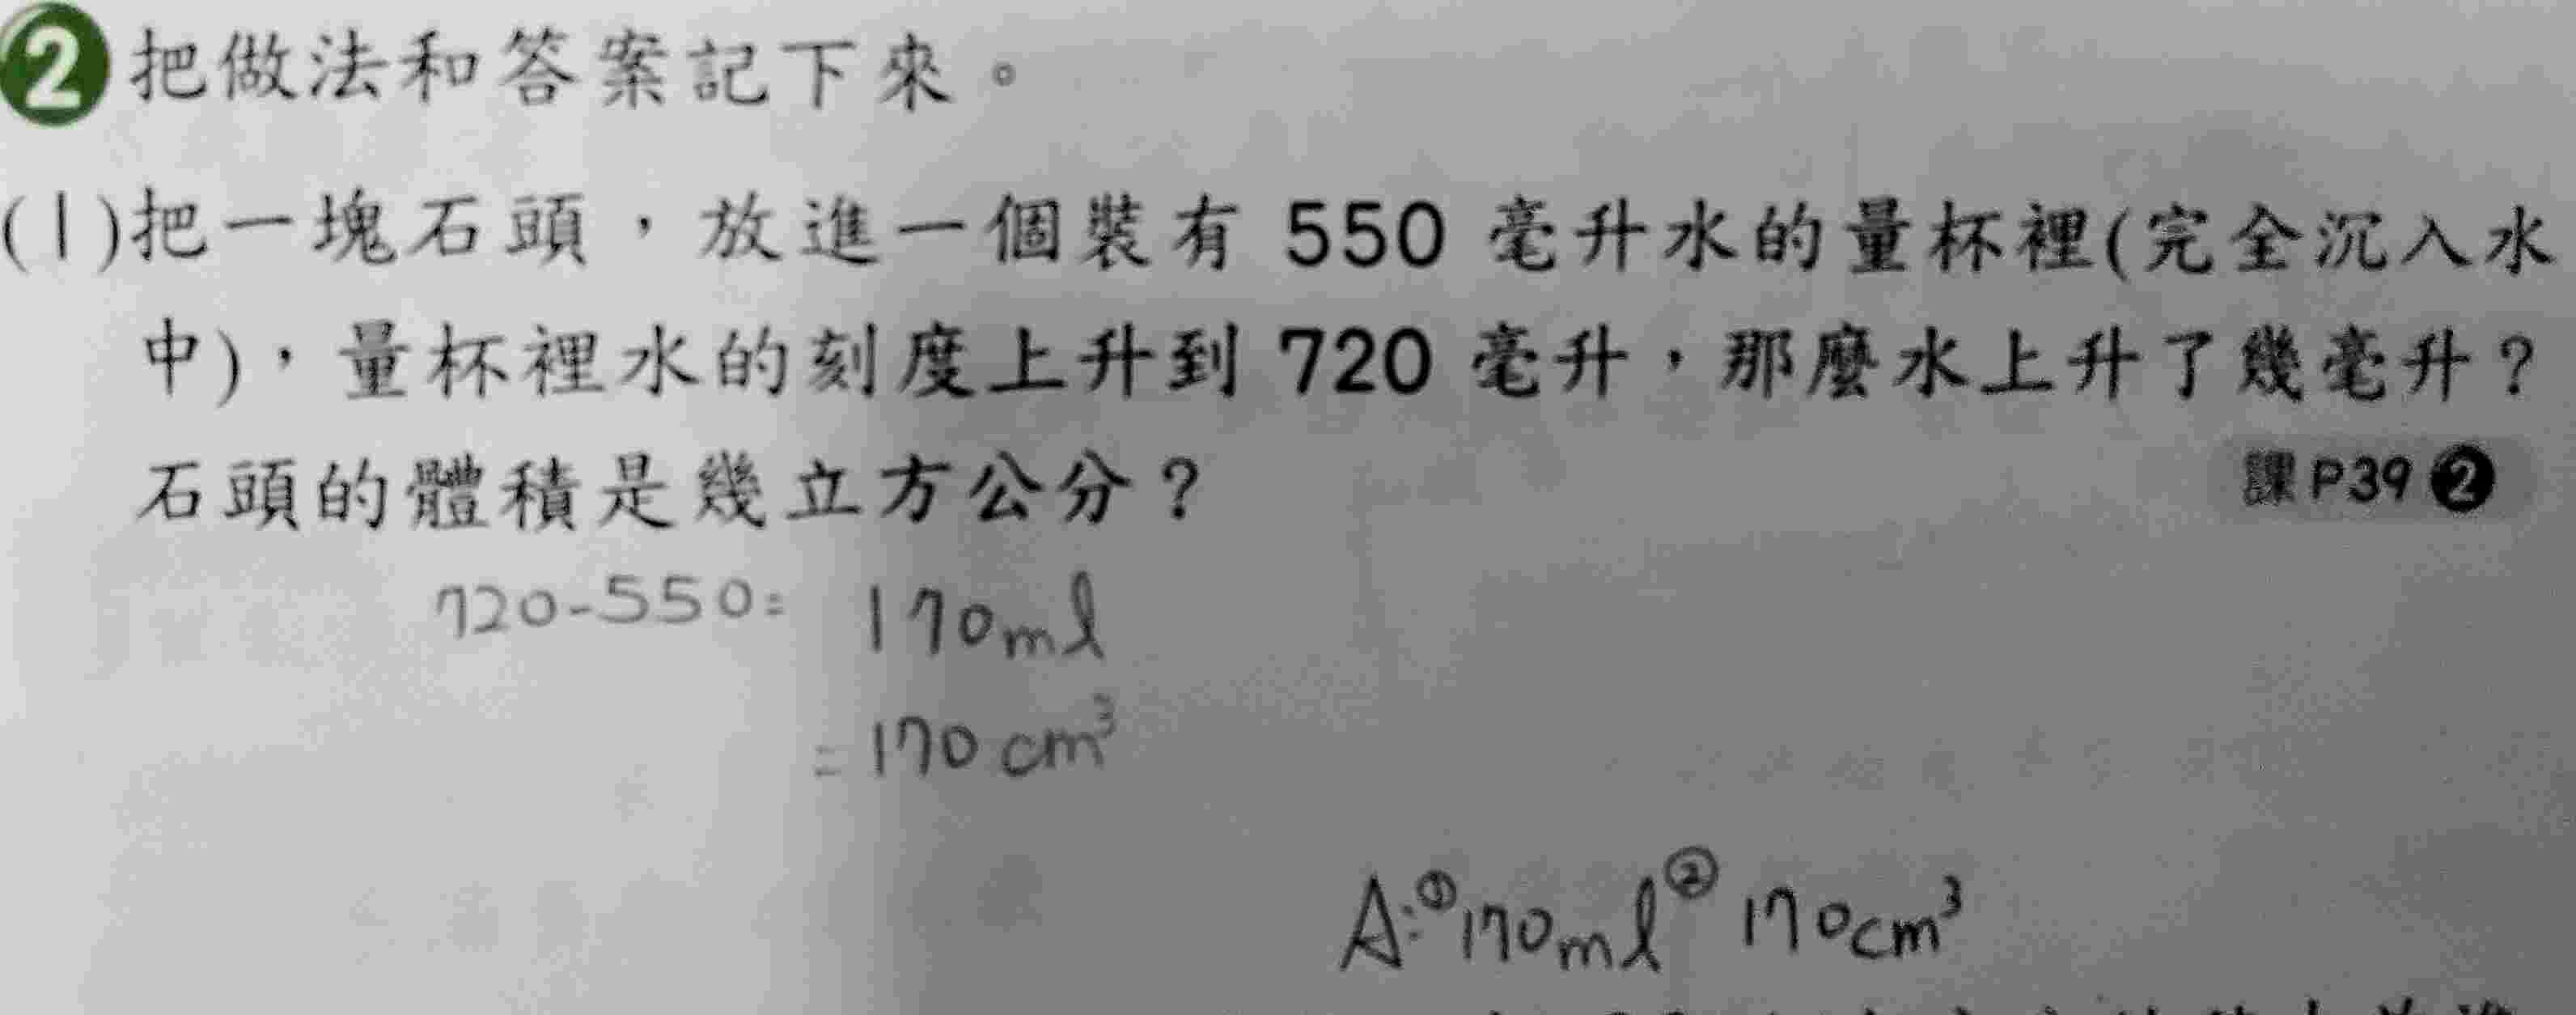 2 把做法和答案記下來。
(1)把一塊石頭，放進一個裝有 550 毫升水的量杯裡(完全沉入水
中)，量杯裡水的刻度上升到 720 毫升，那麼水上升了幾毫升？
石頭的體積是幾立方公分？
課P39 2
720-550= 170ml
=170cm³
A:①170ml ②170cm³